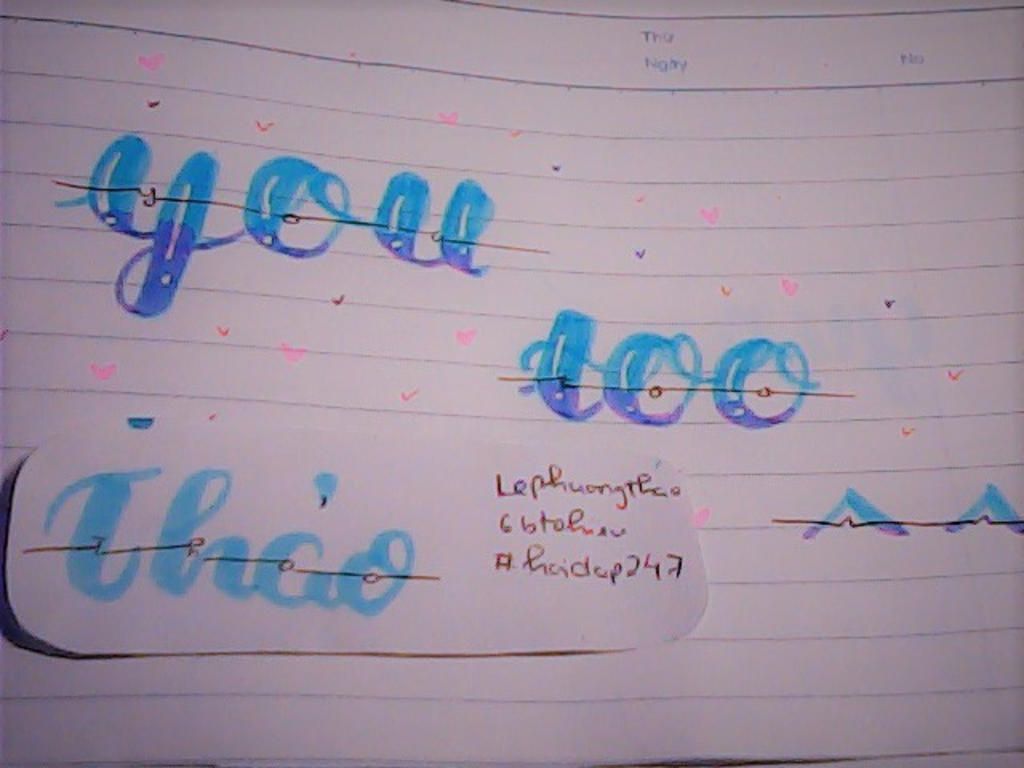 Thứ
Ngày
No
you
too
Thảo
Lephuongthảo
6btohieu
#hoidap247
^ ^